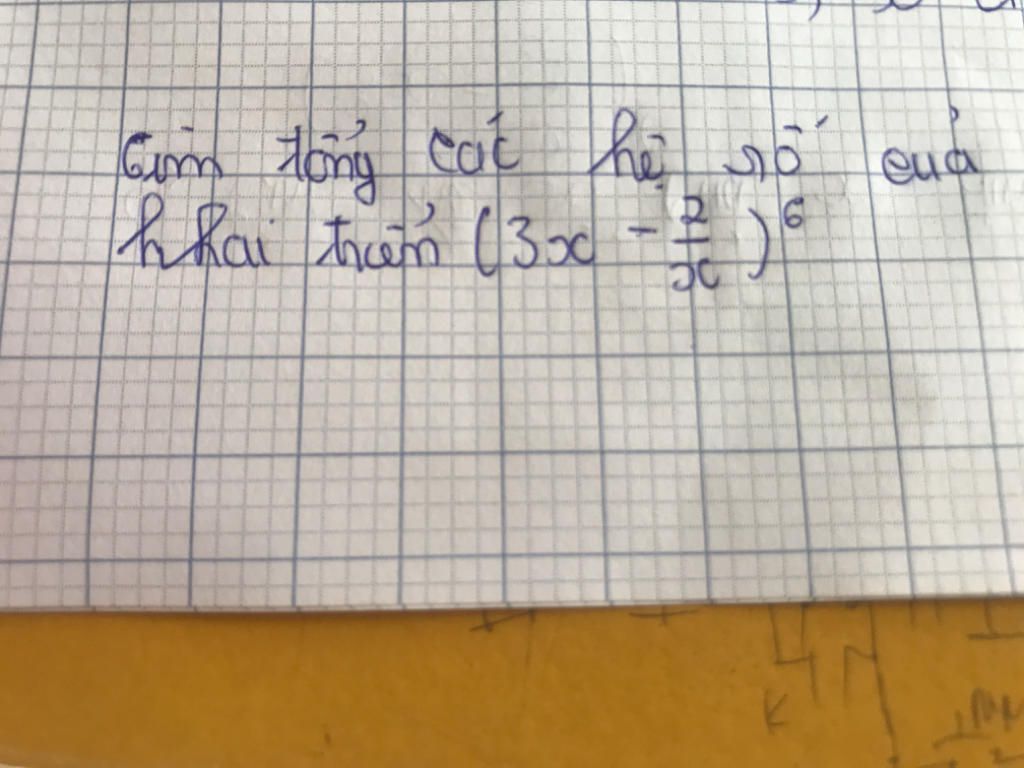 Tìm tổng các hệ số của
khai triển (3x - \frac{2}{x})^6